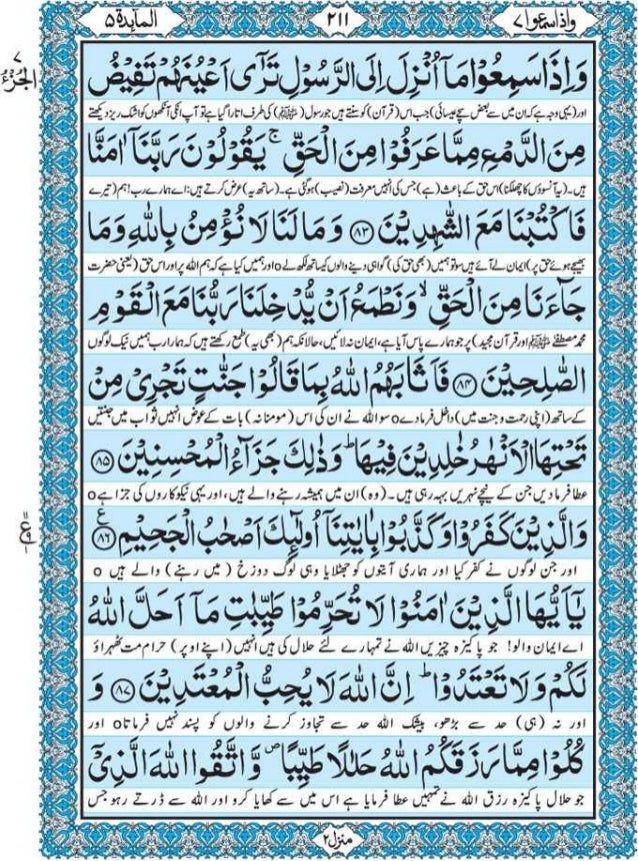 المآىِٕدة ٥
٢١١
واذا سمعوا ٧
٧
الجزء
وَاِذَا سَمِعُوْا مَاۤ اُنْزِلَ اِلَى الرَّسُوْلِ تَرٰۤى اَعْيُنَهُمْ تَفِيْضُ
اور (یہی وجہ ہے کہ ان میں سے بعض سچے عیسائی) جب اس (قرآن) کو سنتے ہیں جو رسول (ﷺ) کی طرف اتارا گیا ہے تو آپ انکی آنکھوں کو اشک ریز دیکھتے
مِنَ الدَّمْعِ مِمَّا عَرَفُوْا مِنَ الْحَقِّ ۚ يَقُوْلُوْنَ رَبَّنَاۤ اٰمَنَّا
ہیں۔ (یہ آنسوؤں کا چھلکنا) اس حق کے باعث (ہے) جس کی انہیں معرفت (نصیب) ہوگئی ہے۔ (ساتھ یہ) عرض کرتے ہیں: اے ہمارے رب! ہم (تیرے
فَاكْتُبْنَا مَعَ الشّٰهِدِيْنَ ﴿٨٣﴾ وَمَا لَنَا لَا نُؤْمِنُ بِاللّٰهِ وَمَا
بھیجے ہوئے حق پر) ایمان لے آئے ہیں سو تو ہمیں (بھی حق کی) گواہی دینے والوں کیساتھ لکھ لے ٥ اور ہمیں کیا ہے کہ ہم اللہ پر اور اس حق (یعنی حضرت
جَآءَنَا مِنَ الْحَقِّ ۙ وَنَطْمَعُ اَنْ يُّدْخِلَنَا رَبُّنَا مَعَ الْقَوْمِ
محمد مصطفےٰ ﷺ اور قرآن مجید) پر جو ہمارے پاس آیا ہے، ایمان نہ لائیں، حالانکہ ہم (بھی یہ) طمع رکھتے ہیں کہ ہمارا رب ہمیں نیک لوگوں
الصّٰلِحِيْنَ ﴿٨٤﴾ فَاَثَابَهُمُ اللّٰهُ بِمَا قَالُوْا جَنّٰتٍ تَجْرِيْ مِنْ
کے ساتھ (اپنی رحمت و جنت میں) داخل فرما دے ٥ سو اللہ نے ان کی اس (مومنانہ) بات کے عوض انہیں ثواب میں جنتیں
تَحْتِهَا الْاَنْهٰرُ خٰلِدِيْنَ فِيْهَا ؕ وَذٰلِكَ جَزَآءُ الْمُحْسِنِيْنَ ﴿٨٥﴾
عطا فرما دیں جن کے نیچے نہریں بہہ رہی ہیں۔ (وہ) ان میں ہمیشہ رہنے والے ہیں، اور یہی نیکوکاروں کی جزا ہے ٥
وَالَّذِيْنَ كَفَرُوْا وَكَذَّبُوْا بِاٰيٰتِنَاۤ اُولٰٓىِٕكَ اَصْحٰبُ الْجَحِيْمِ ﴿٨٦﴾ ع
اور جن لوگوں نے کفر کیا اور ہماری آیتوں کو جھٹلایا وہی لوگ دوزخ (میں رہنے) والے ہیں ٥
يٰۤاَيُّهَا الَّذِيْنَ اٰمَنُوْا لَا تُحَرِّمُوْا طَيِّبٰتِ مَاۤ اَحَلَّ اللّٰهُ
اے ایمان والو! جو پاکیزہ چیزیں اللہ نے تمہارے لئے حلال کی ہیں انہیں (اپنے اوپر) حرام مت ٹھہراؤ
لَكُمْ وَلَا تَعْتَدُوْا ؕ اِنَّ اللّٰهَ لَا يُحِبُّ الْمُعْتَدِيْنَ ﴿٨٧﴾ وَ
اور نہ (ہی) حد سے بڑھو، بیشک اللہ حد سے تجاوز کرنے والوں کو پسند نہیں فرماتا ٥ اور
كُلُوْا مِمَّا رَزَقَكُمُ اللّٰهُ حَلٰلًا طَيِّبًا ۪ وَّاتَّقُوا اللّٰهَ الَّذِيْۤ
جو حلال پاکیزہ رزق اللہ نے تمہیں عطا فرمایا ہے اس میں سے کھایا کرو اور اللہ سے ڈرتے رہو جس
منزل ٢